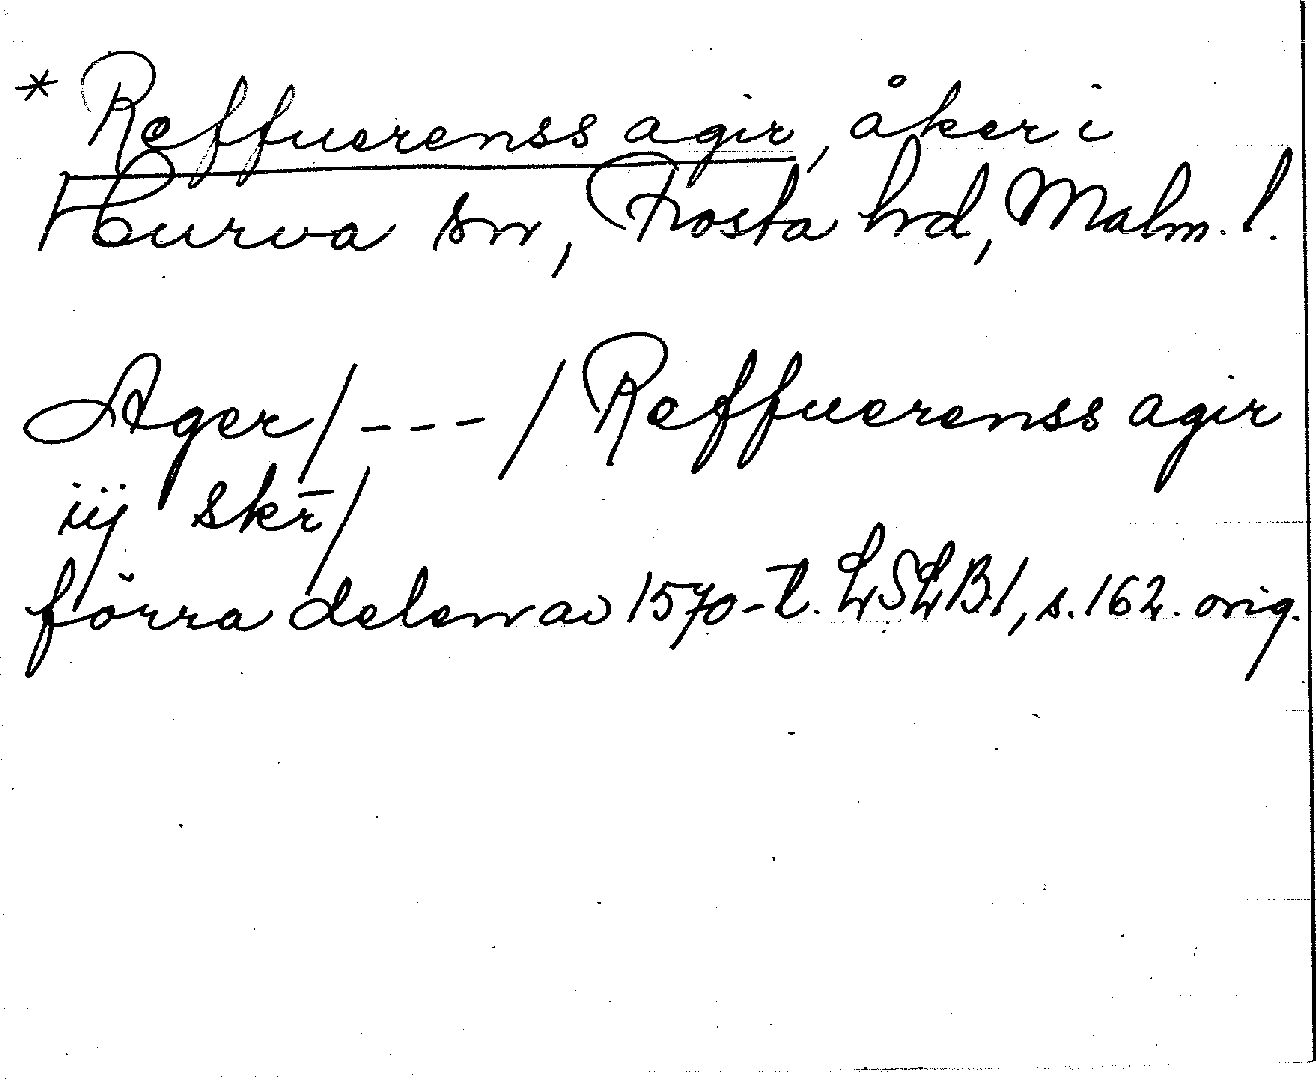 * Reffuerenss agir, åker i
Hurva sn, Frosta hd, Malm. l.
Ager/---/Reffuerenss agir
iij skr̄/
förra delen av 1570-t. LSLB1, s. 162. orig.